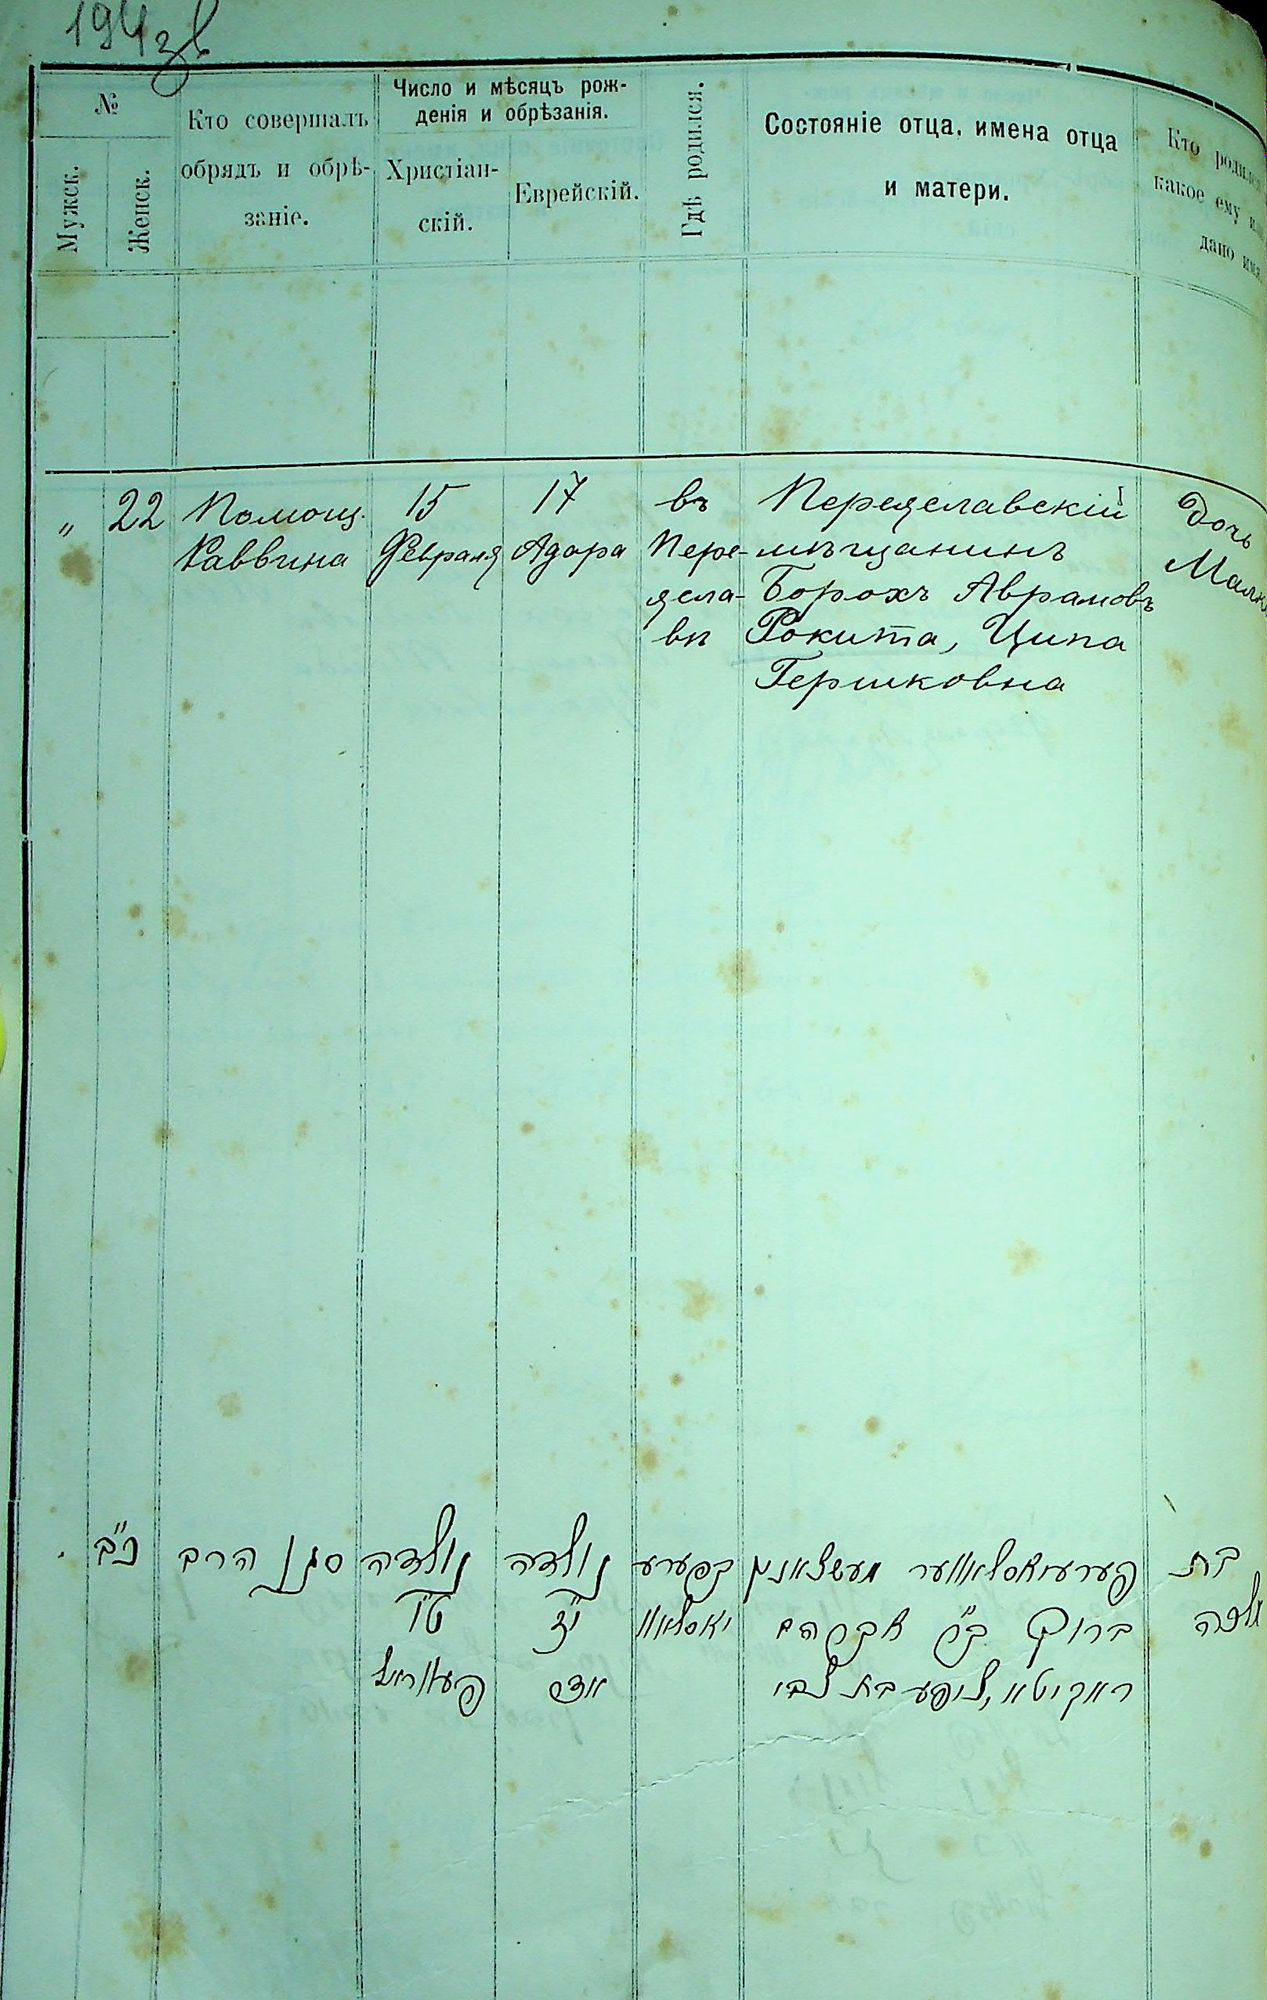 194зв
№
Мужск.
Женск.
Кто совершалъ
обрядъ и обрѣ-
заніе.
Число и мѣсяцъ рож-
денія и обрѣзанія.
Христіан-
скій.
Еврейскій.
Гдѣ родился.
Состояніе отца, имена отца
и матери.
Кто родился
какое ему
дано имя.
„ 22
Помощ.
Раввина
15
Февраля
17
Адара
въ
Пере-
ясла-
вѣ
Переяславскій
мѣщанинъ
Борохъ Аврамовъ
Рокита, Ципа
Гершковна
Дочь
Малка
כ"ב
סגן הרב
נולדה
ט"ו
פעווראל
נולדה
י"ז
אדר
בפערע
יאסלאוו
פערעיאסלאווער מעשצאנין
ברוך ב"ר אברהם
ראקיטא, ציפע בת צבי
בת
מלכה